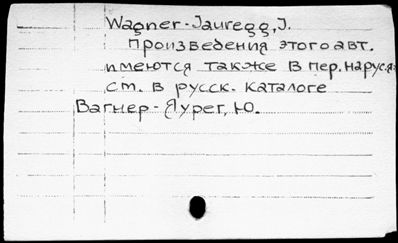 Wagner-Jauregg, J.
Произведения этого авт.
имеются также в пер. на рус.я.
см. в русск. каталоге
Вагнер-Яурег, Ю.